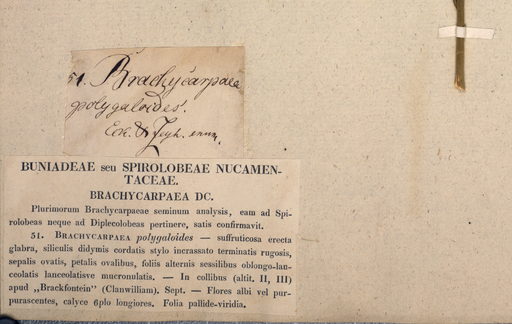 51. Brachycarpaea
polygaloides.
Eck. & Zeyh. enum.
BUNIADEAE seu SPIROLOBEAE NUCAMEN-
TACEAE.
BRACHYCARPAEA DC.
Plurimorum Brachycarpaeae seminum analysis, eam ad Spi-
rolobeas neque ad Diplecolobeas pertinere, satis confirmavit.
51. BRACHYCARPAEA polygaloides — suffruticosa erecta
glabra, siliculis didymis cordatis stylo incrassato terminatis rugosis,
sepalis ovatis, petalis ovalibus, foliis alternis sessilibus oblongo-lan-
ceolatis lanceolatisve mucronulatis. — In collibus (altit. II, III)
apud „Brackfontein" (Clanwilliam). Sept. — Flores albi vel pur-
purascentes, calyce 6plo longiores. Folia pallide-viridia.